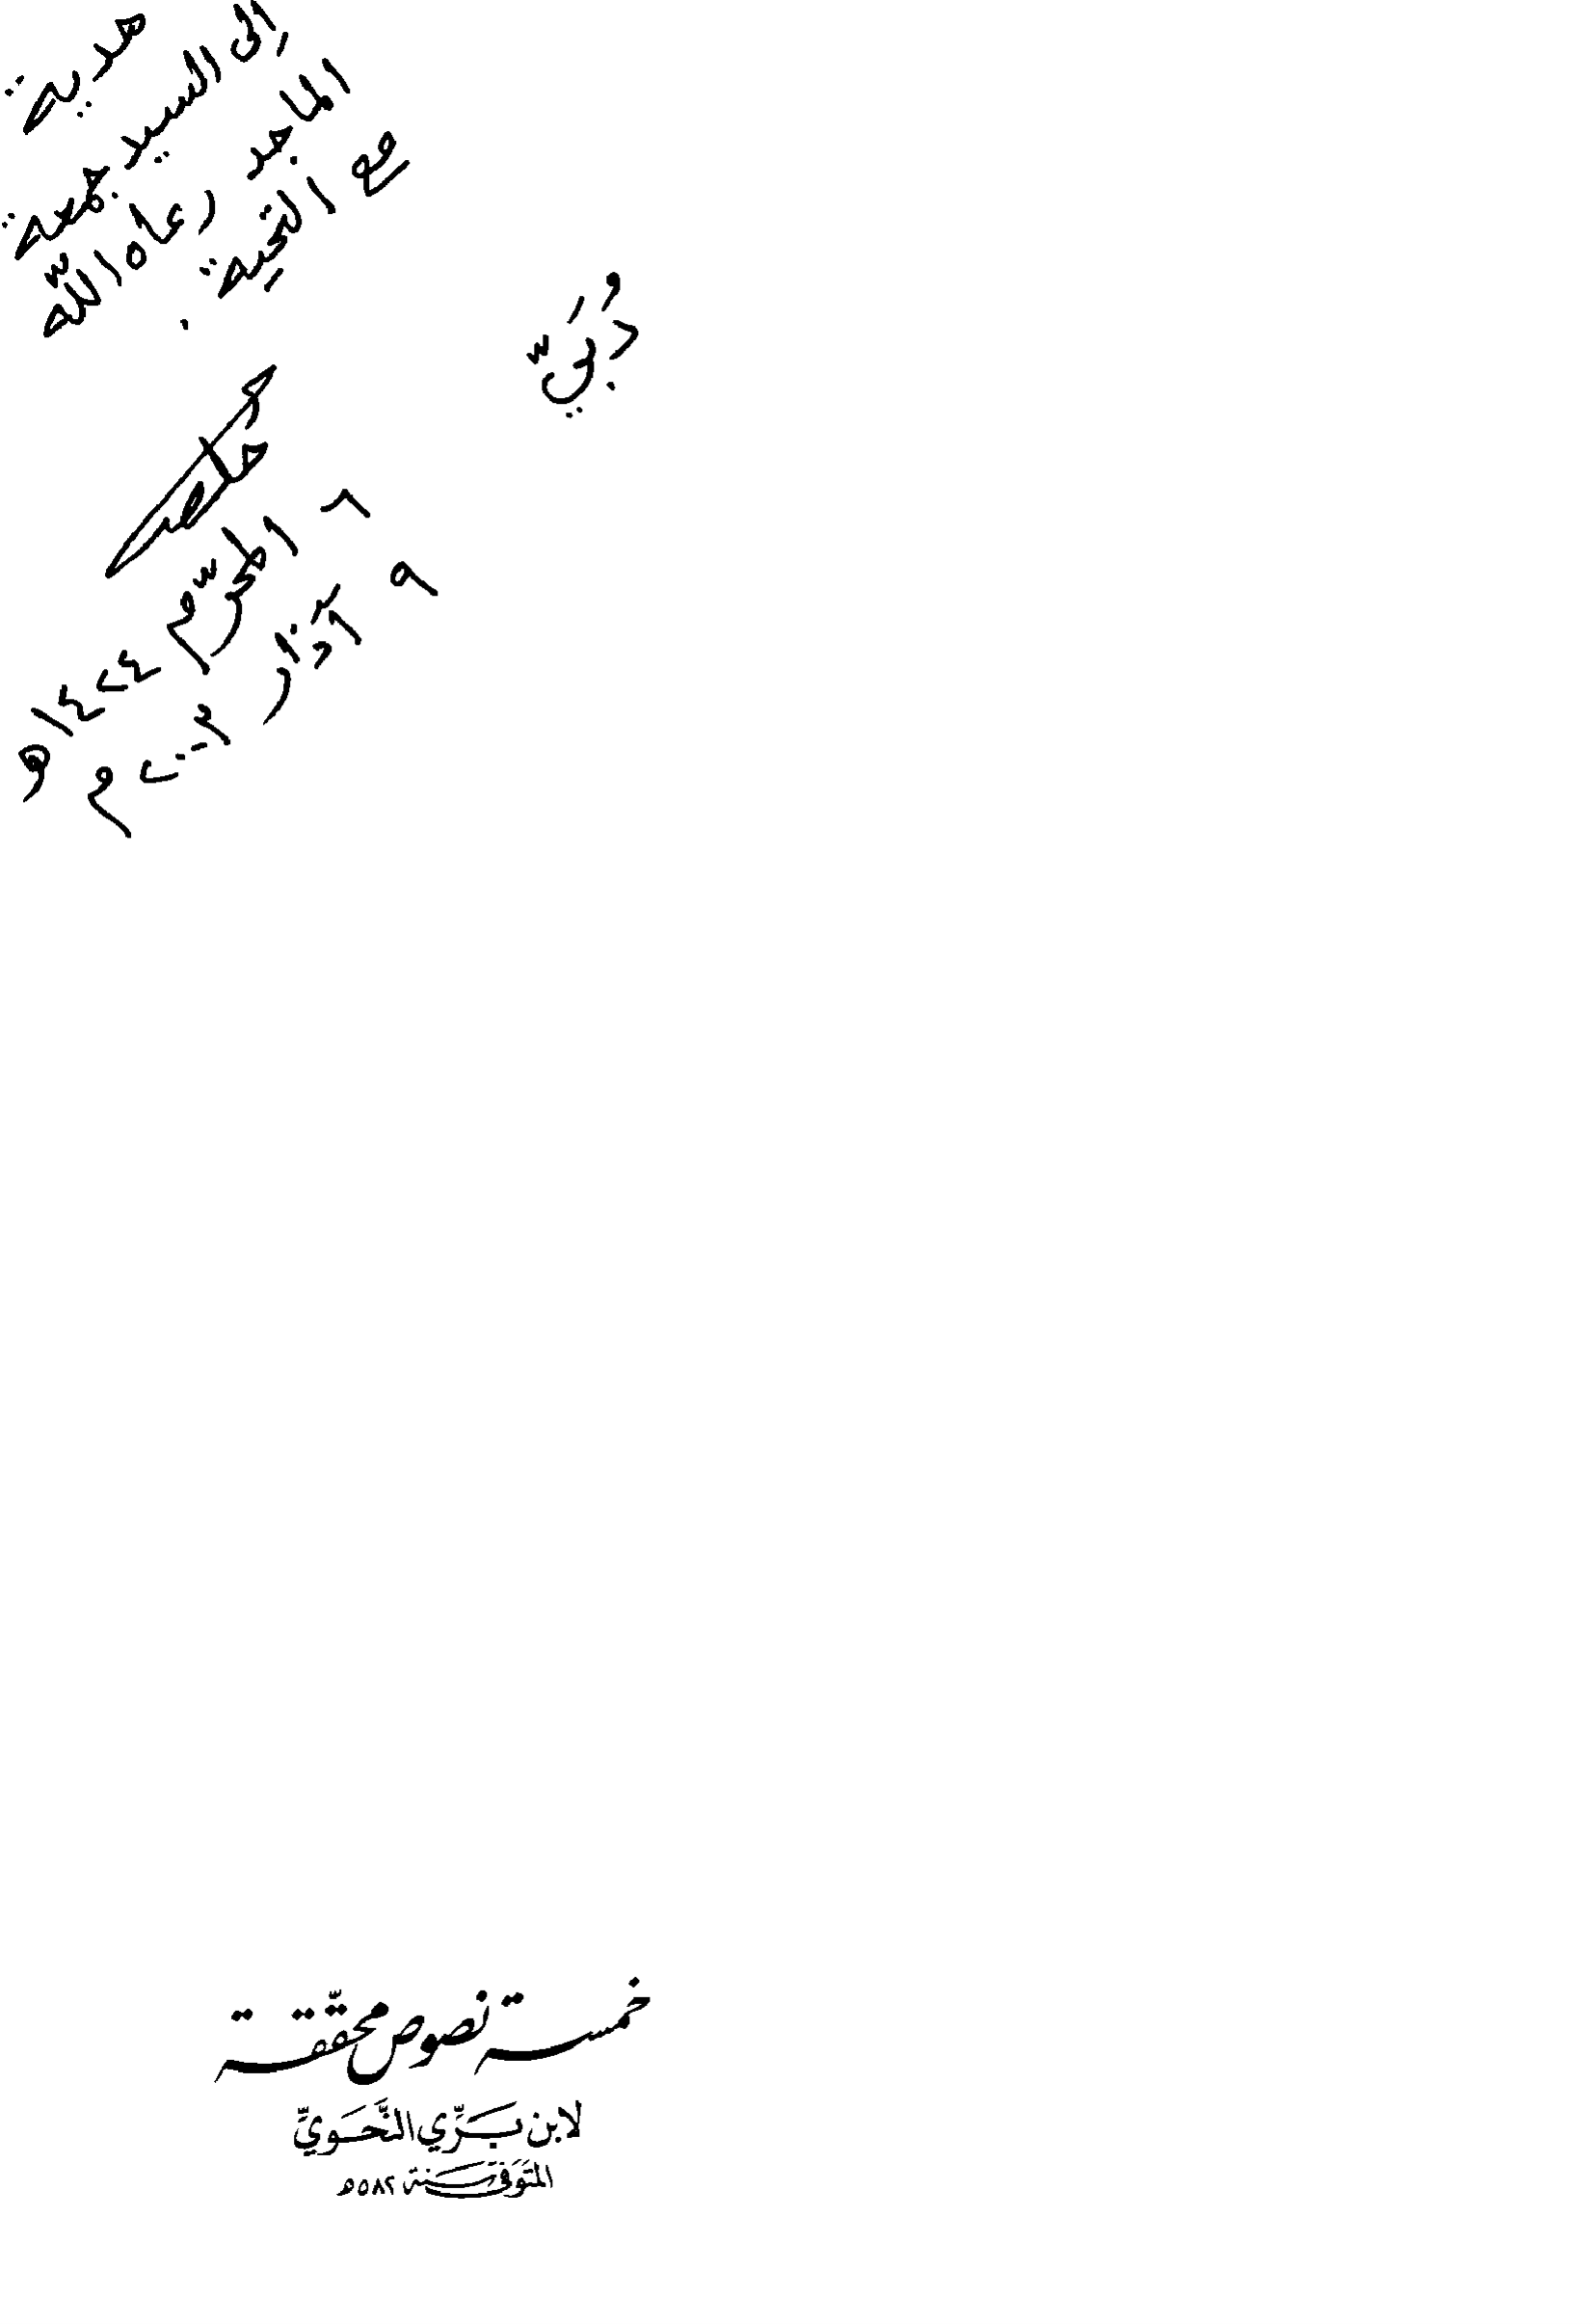 هدية
إلى السيد جمعة
الماجد رعاه اللّه
مع التحية.
دُبَيّ
٨ المحرّم ١٤٢٤هـ
٩ آذار ٢٠٠٣م
خمسة نصوص محقّقة
لابن بَرِّي النَّحَوِيّ
المتَوَفّى سَنة ٥٨٢هـ